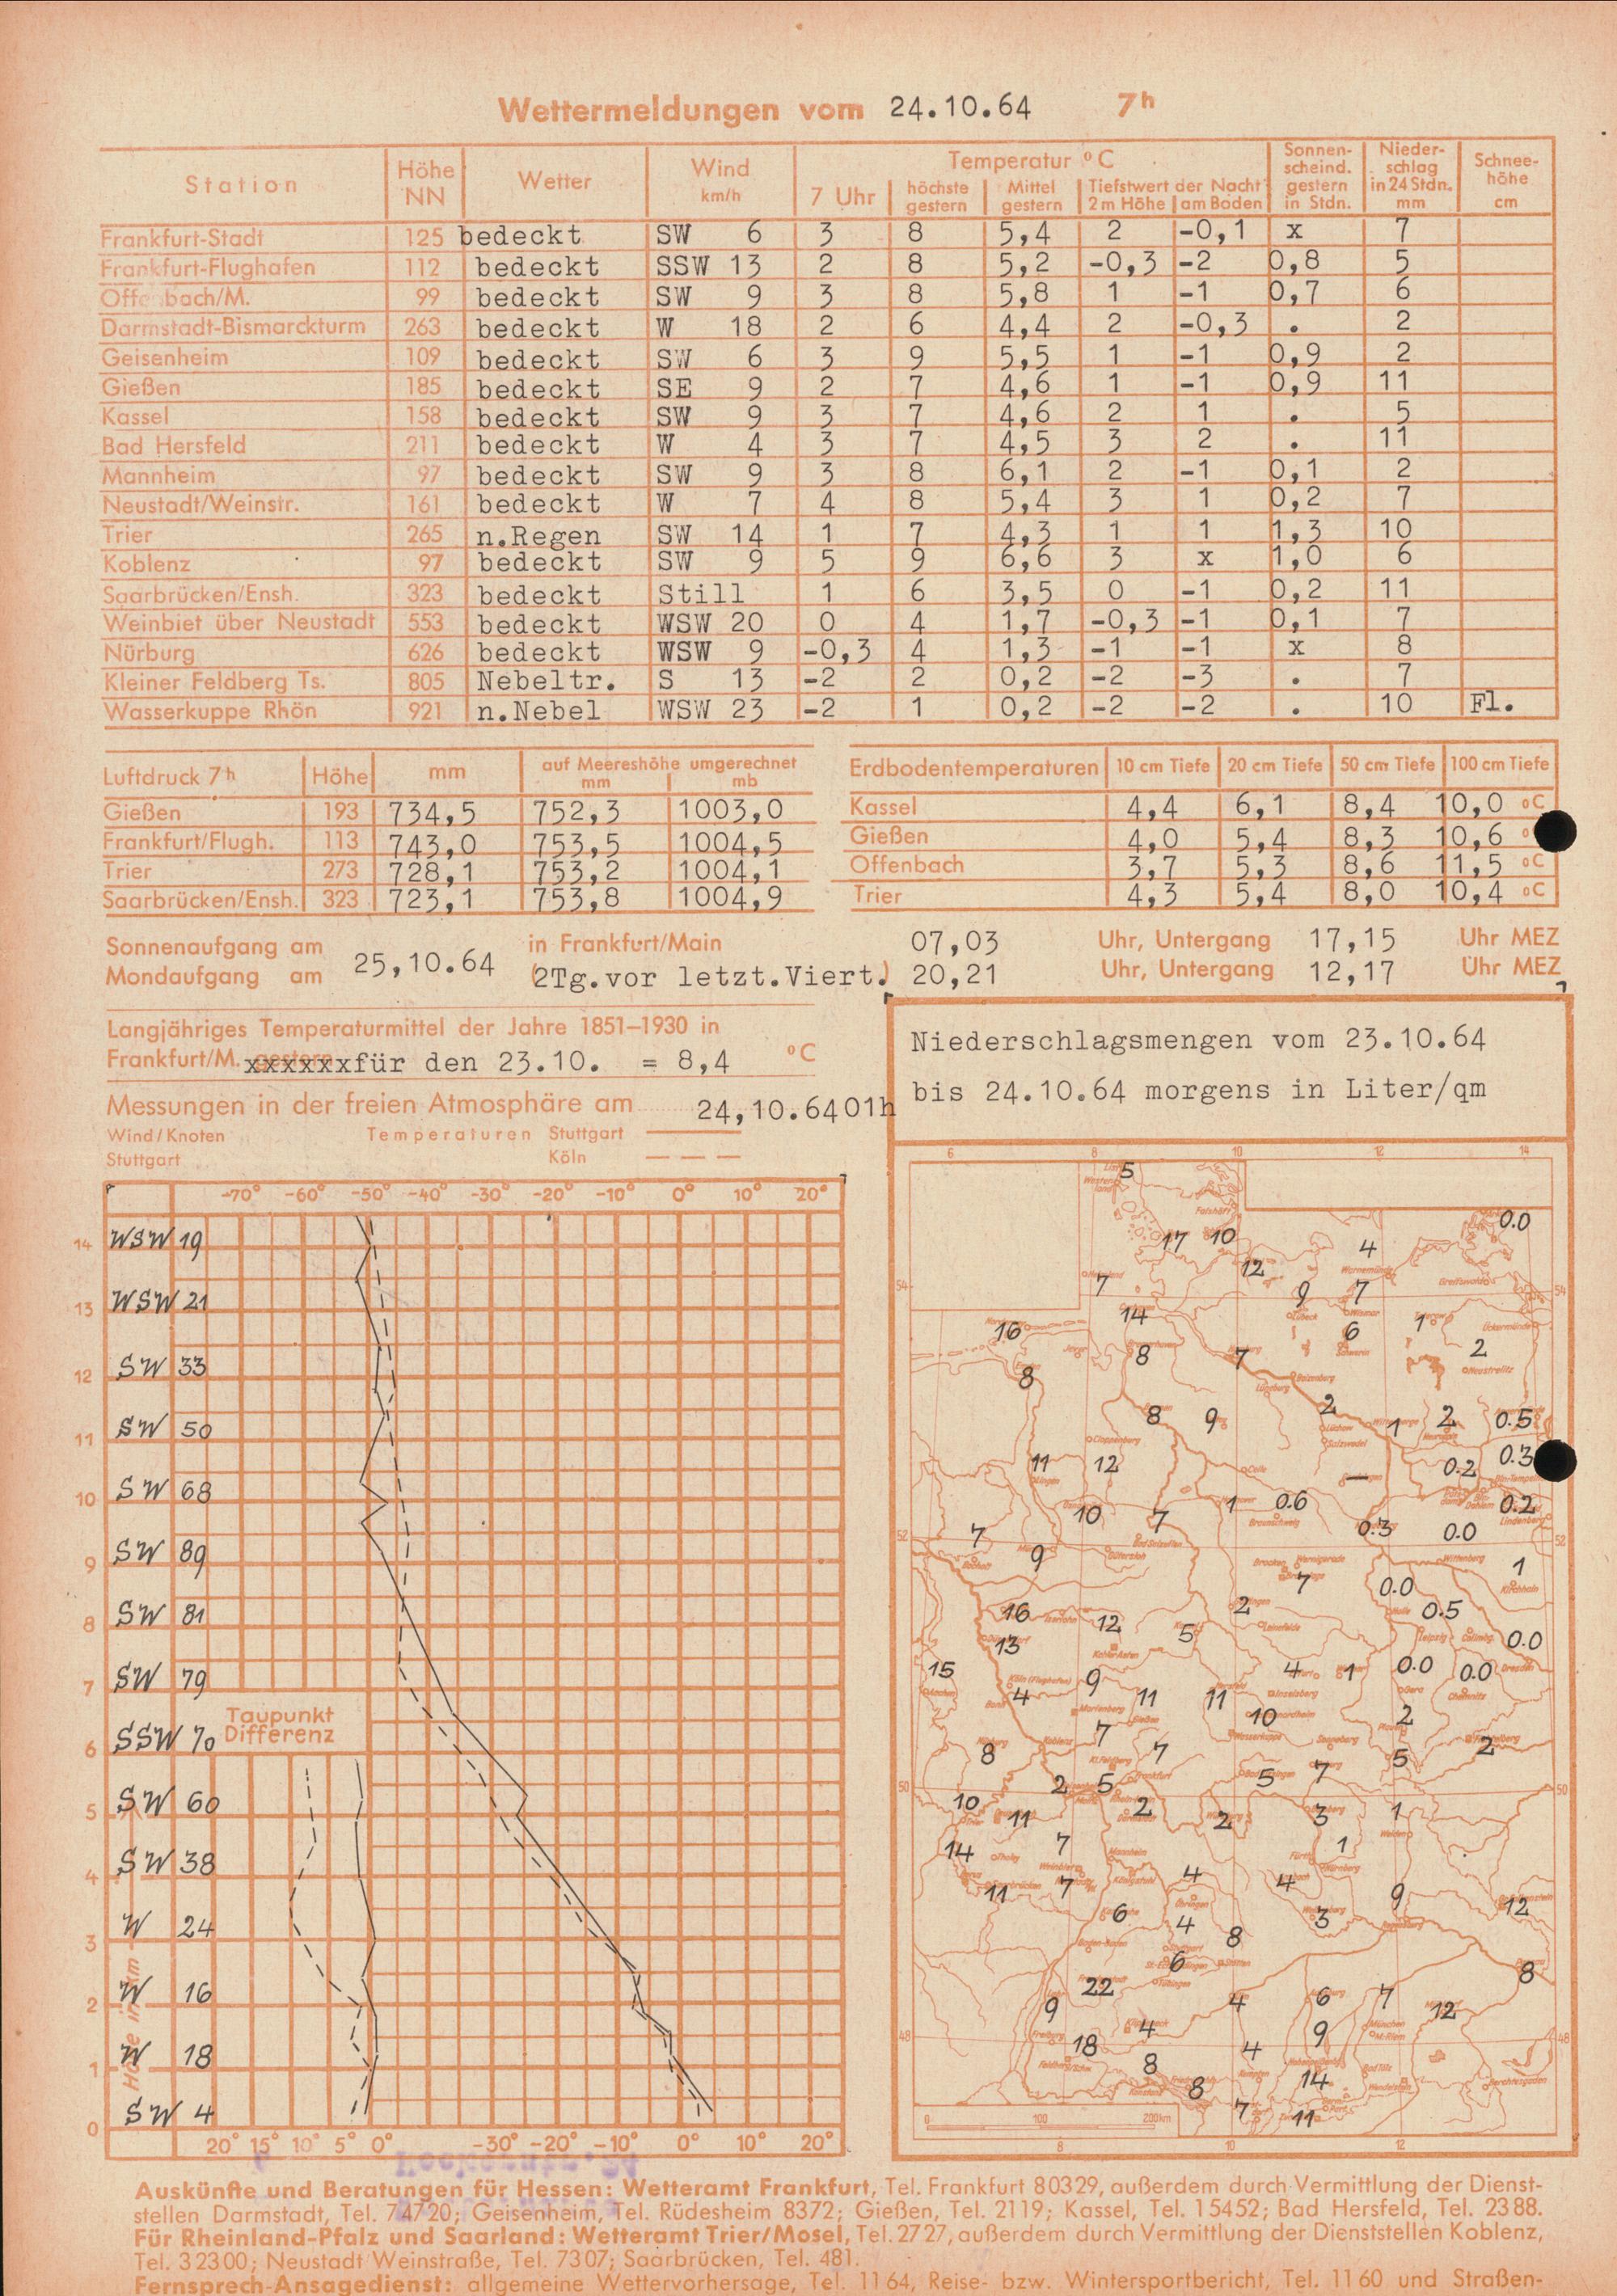 Wettermeldungen vom 24.10.64 7h
Station Höhe NN Wetter Wind km/h Temperatur °C Sonnenscheind. gestern in Stdn. Niederschlag in 24 Stdn. mm Schneehöhe cm
7 Uhr höchste gestern Mittel gestern Tiefstwert der Nacht 2 m Höhe am Boden
Frankfurt-Stadt 125 bedeckt SW 6 3 8 5,4 2 -0,1 x 7
Frankfurt-Flughafen 112 bedeckt SSW 13 2 8 5,2 -0,3 -2 0,8 5
Offenbach/M. 99 bedeckt SW 9 3 8 5,8 1 -1 0,7 6
Darmstadt-Bismarckturm 263 bedeckt W 18 2 6 4,4 2 -0,3 . 2
Geisenheim 109 bedeckt SW 6 3 9 5,5 1 -1 0,9 2
Gießen 185 bedeckt SE 9 2 7 4,6 1 -1 0,9 11
Kassel 158 bedeckt SW 9 3 7 4,6 2 1 . 5
Bad Hersfeld 211 bedeckt W 4 3 7 4,5 3 2 . 11
Mannheim 97 bedeckt SW 9 3 8 6,1 2 -1 0,1 2
Neustadt/Weinstr. 161 bedeckt W 7 4 8 5,4 3 1 0,2 7
Trier 265 n.Regen SW 14 1 7 4,3 1 1 1,3 10
Koblenz 97 bedeckt SW 9 5 9 6,6 3 x 1,0 6
Saarbrücken/Ensh. 323 bedeckt Still 1 6 3,5 0 -1 0,2 11
Weinbiet über Neustadt 553 bedeckt WSW 20 0 4 1,7 -0,3 -1 0,1 7
Nürburg 626 bedeckt WSW 9 -0,3 4 1,3 -1 -1 x 8
Kleiner Feldberg Ts. 805 Nebeltr. S 13 -2 2 0,2 -2 -3 . 7
Wasserkuppe Rhön 921 n.Nebel WSW 23 -2 1 0,2 -2 -2 . 10 Fl.
Luftdruck 7h Höhe mm auf Meereshöhe umgerechnet mm mb
Gießen 193 734,5 752,3 1003,0
Frankfurt/Flugh. 113 743,0 753,5 1004,5
Trier 273 728,1 753,2 1004,1
Saarbrücken/Ensh. 323 723,1 753,8 1004,9
Erdbodentemperaturen 10 cm Tiefe 20 cm Tiefe 50 cm Tiefe 100 cm Tiefe
Kassel 4,4 6,1 8,4 10,0 °C
Gießen 4,0 5,4 8,3 10,6 °
Offenbach 3,7 5,3 8,6 11,5 °C
Trier 4,3 5,4 8,0 10,4 °C
Sonnenaufgang am 25,10.64 in Frankfurt/Main 07,03 Uhr, Untergang 17,15 Uhr MEZ
Mondaufgang am (2Tg.vor letzt.Viert.) 20,21 Uhr, Untergang 12,17 Uhr MEZ
Langjähriges Temperaturmittel der Jahre 1851–1930 in
Frankfurt/M. xxxxxxfür den 23.10. = 8,4 °C
Messungen in der freien Atmosphäre am 24,10.64 01h
Wind/Knoten Temperaturen Stuttgart
Stuttgart Köln
-70° -60° -50° -40° -30° -20° -10° 0° 10° 20°
14 WSW 19
13 WSW 21
12 SW 33
11 SW 50
10 SW 68
9 SW 89
8 SW 81
7 SW 79
Taupunkt
Differenz
6 SSW 70
5 SW 60
4 SW 38
3 W 24
2 W 16
1 W 18
0 SW 4
Höhe in km
20° 15° 10° 5° 0° -30° -20° -10° 0° 10° 20°
Niederschlagsmengen vom 23.10.64
bis 24.10.64 morgens in Liter/qm
6 8 10 12 14
5
0.0
17 10 4
12
7 9 7
54 54
14
16 6 1
8 7 2
8
2
8 9 1 2 0.5
11 12 0.2 0.3
10 7 1 0.6 0.2
7 0.3 0.0
52 52
9 7 0.0 1
16 12 2 0.5
13 5 0.0
15 9 4 1 0.0 0.0
4 11 11 10 2
8 7 7 5 2
2 5 5 7
50 50
10 11 2 2 3 1
14 7 1
11 7 4 4 9 12
6 4 8 3
6 8
22 4 6 7 12
9
18 4 9
48 48
8 4
8 14
7 11
0 100 200km
8 10 12
Auskünfte und Beratungen für Hessen: Wetteramt Frankfurt, Tel. Frankfurt 80329, außerdem durch Vermittlung der Dienst-
stellen Darmstadt, Tel. 74720; Geisenheim, Tel. Rüdesheim 8372; Gießen, Tel. 2119; Kassel, Tel. 15452; Bad Hersfeld, Tel. 2388.
Für Rheinland-Pfalz und Saarland: Wetteramt Trier/Mosel, Tel. 2727, außerdem durch Vermittlung der Dienststellen Koblenz,
Tel. 32300; Neustadt Weinstraße, Tel. 7307; Saarbrücken, Tel. 481.
Fernsprech-Ansagedienst: allgemeine Wettervorhersage, Tel. 1164, Reise- bzw. Wintersportbericht, Tel. 1160 und Straßen-